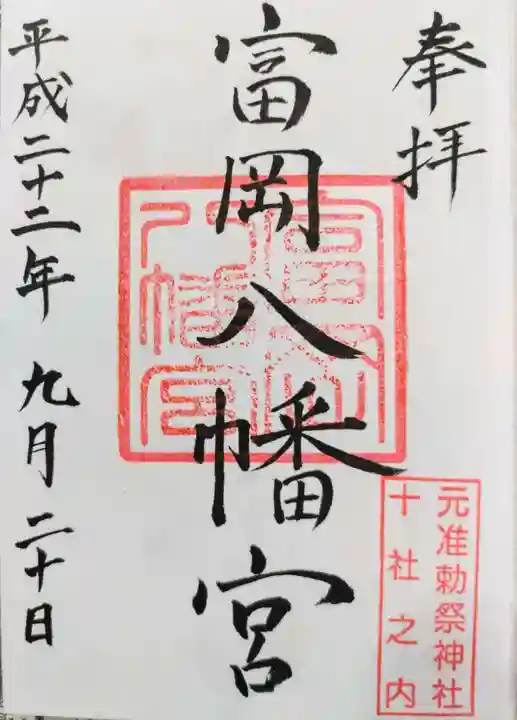 奉拝
元准勅祭神社
十社之内
富岡八幡宮
富岡八幡宮
平成二十二年 九月 二十日